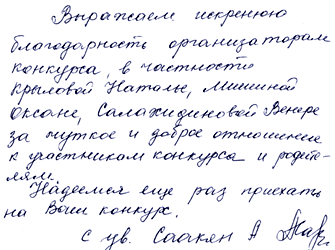 Выражаем искренюю
благодарность организаторам
конкурса, в частности
Крыловой Наталье, Мишиной
Оксане, Салахидиновой Венере
за чуткое и доброе отношение
к участникам конкурса и родите-
лям.
Надеемся еще раз приехать
на Ваш конкурс.
С ув. Саакян А